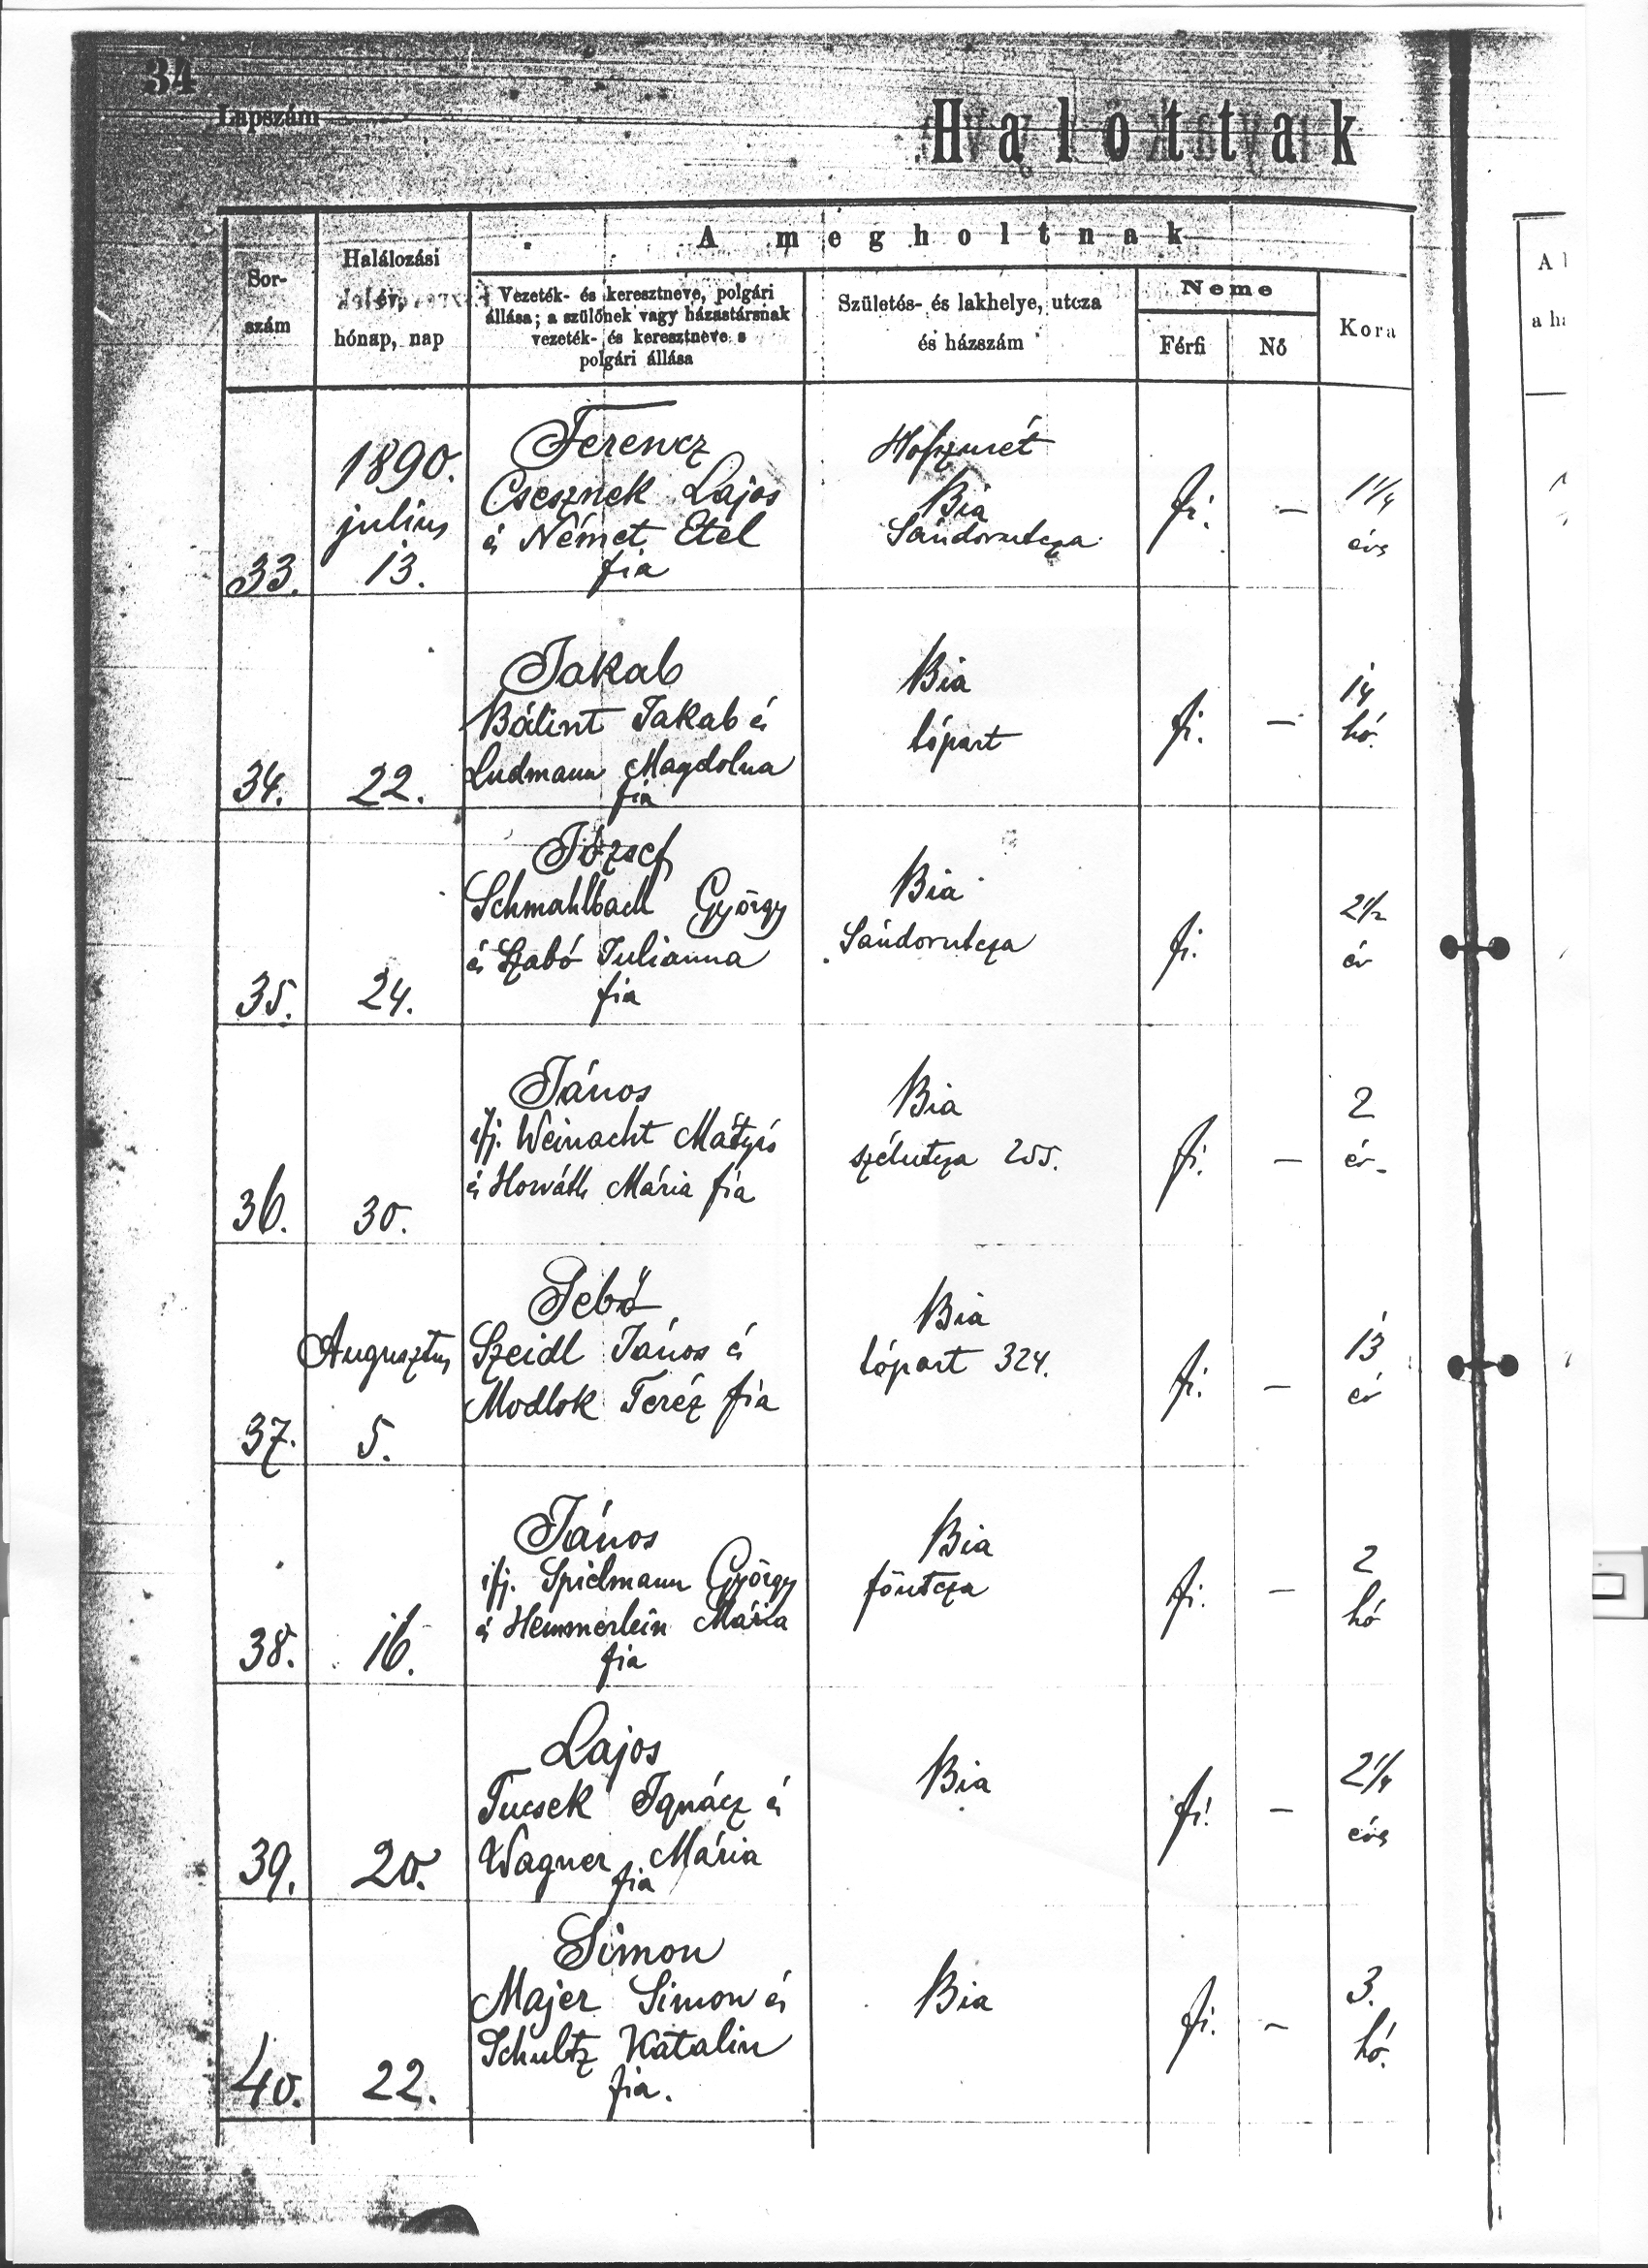 34
Lapszám
Halottak
A megholtnak
Sor-
szám
Halálozási
év,
hónap, nap
Vezeték- és keresztneve, polgári
állása; a szülőnek vagy házastársnak
vezeték- és keresztneve s
polgári állása
Születés- és lakhelye, utcza
és házszám
Neme
Férfi
Nő
Kora
33.
1890.
julius
13.
Ferencz
Csesznek Lajos
és Német Etel
fia
Bia
Sándorutcza
fi.
—
1 1/4
éves
34.
22.
Jakab
Bálint Jakab és
Ludmann Magdolna
fia
Bia
lópart
fi.
—
14
hó.
35.
24.
József
Schmahlbach György
és Szabó Julianna
fia
Bia
Sándorutcza
fi.
2 1/2
év
36.
30.
János
ifj. Weinacht Mátyás
és Horváth Mária fia
Bia
szélutcza 255.
fi.
—
2
év
37.
Augusztus
5.
Szeidl János és
Modlok Teréz fia
Bia
lópart 324.
fi.
—
13
év
38.
16.
János
ifj. Spielmann György
és Hemmerlein Mária
fia
Bia
főutcza
fi.
—
2
hó
39.
20.
Lajos
Tucsek Ignácz és
Wagner Mária
fia
Bia
fi.
—
2 1/4
éves
40.
22.
Simon
Majer Simon és
Schultz Katalin
fia.
Bia
fi.
—
3.
hó.